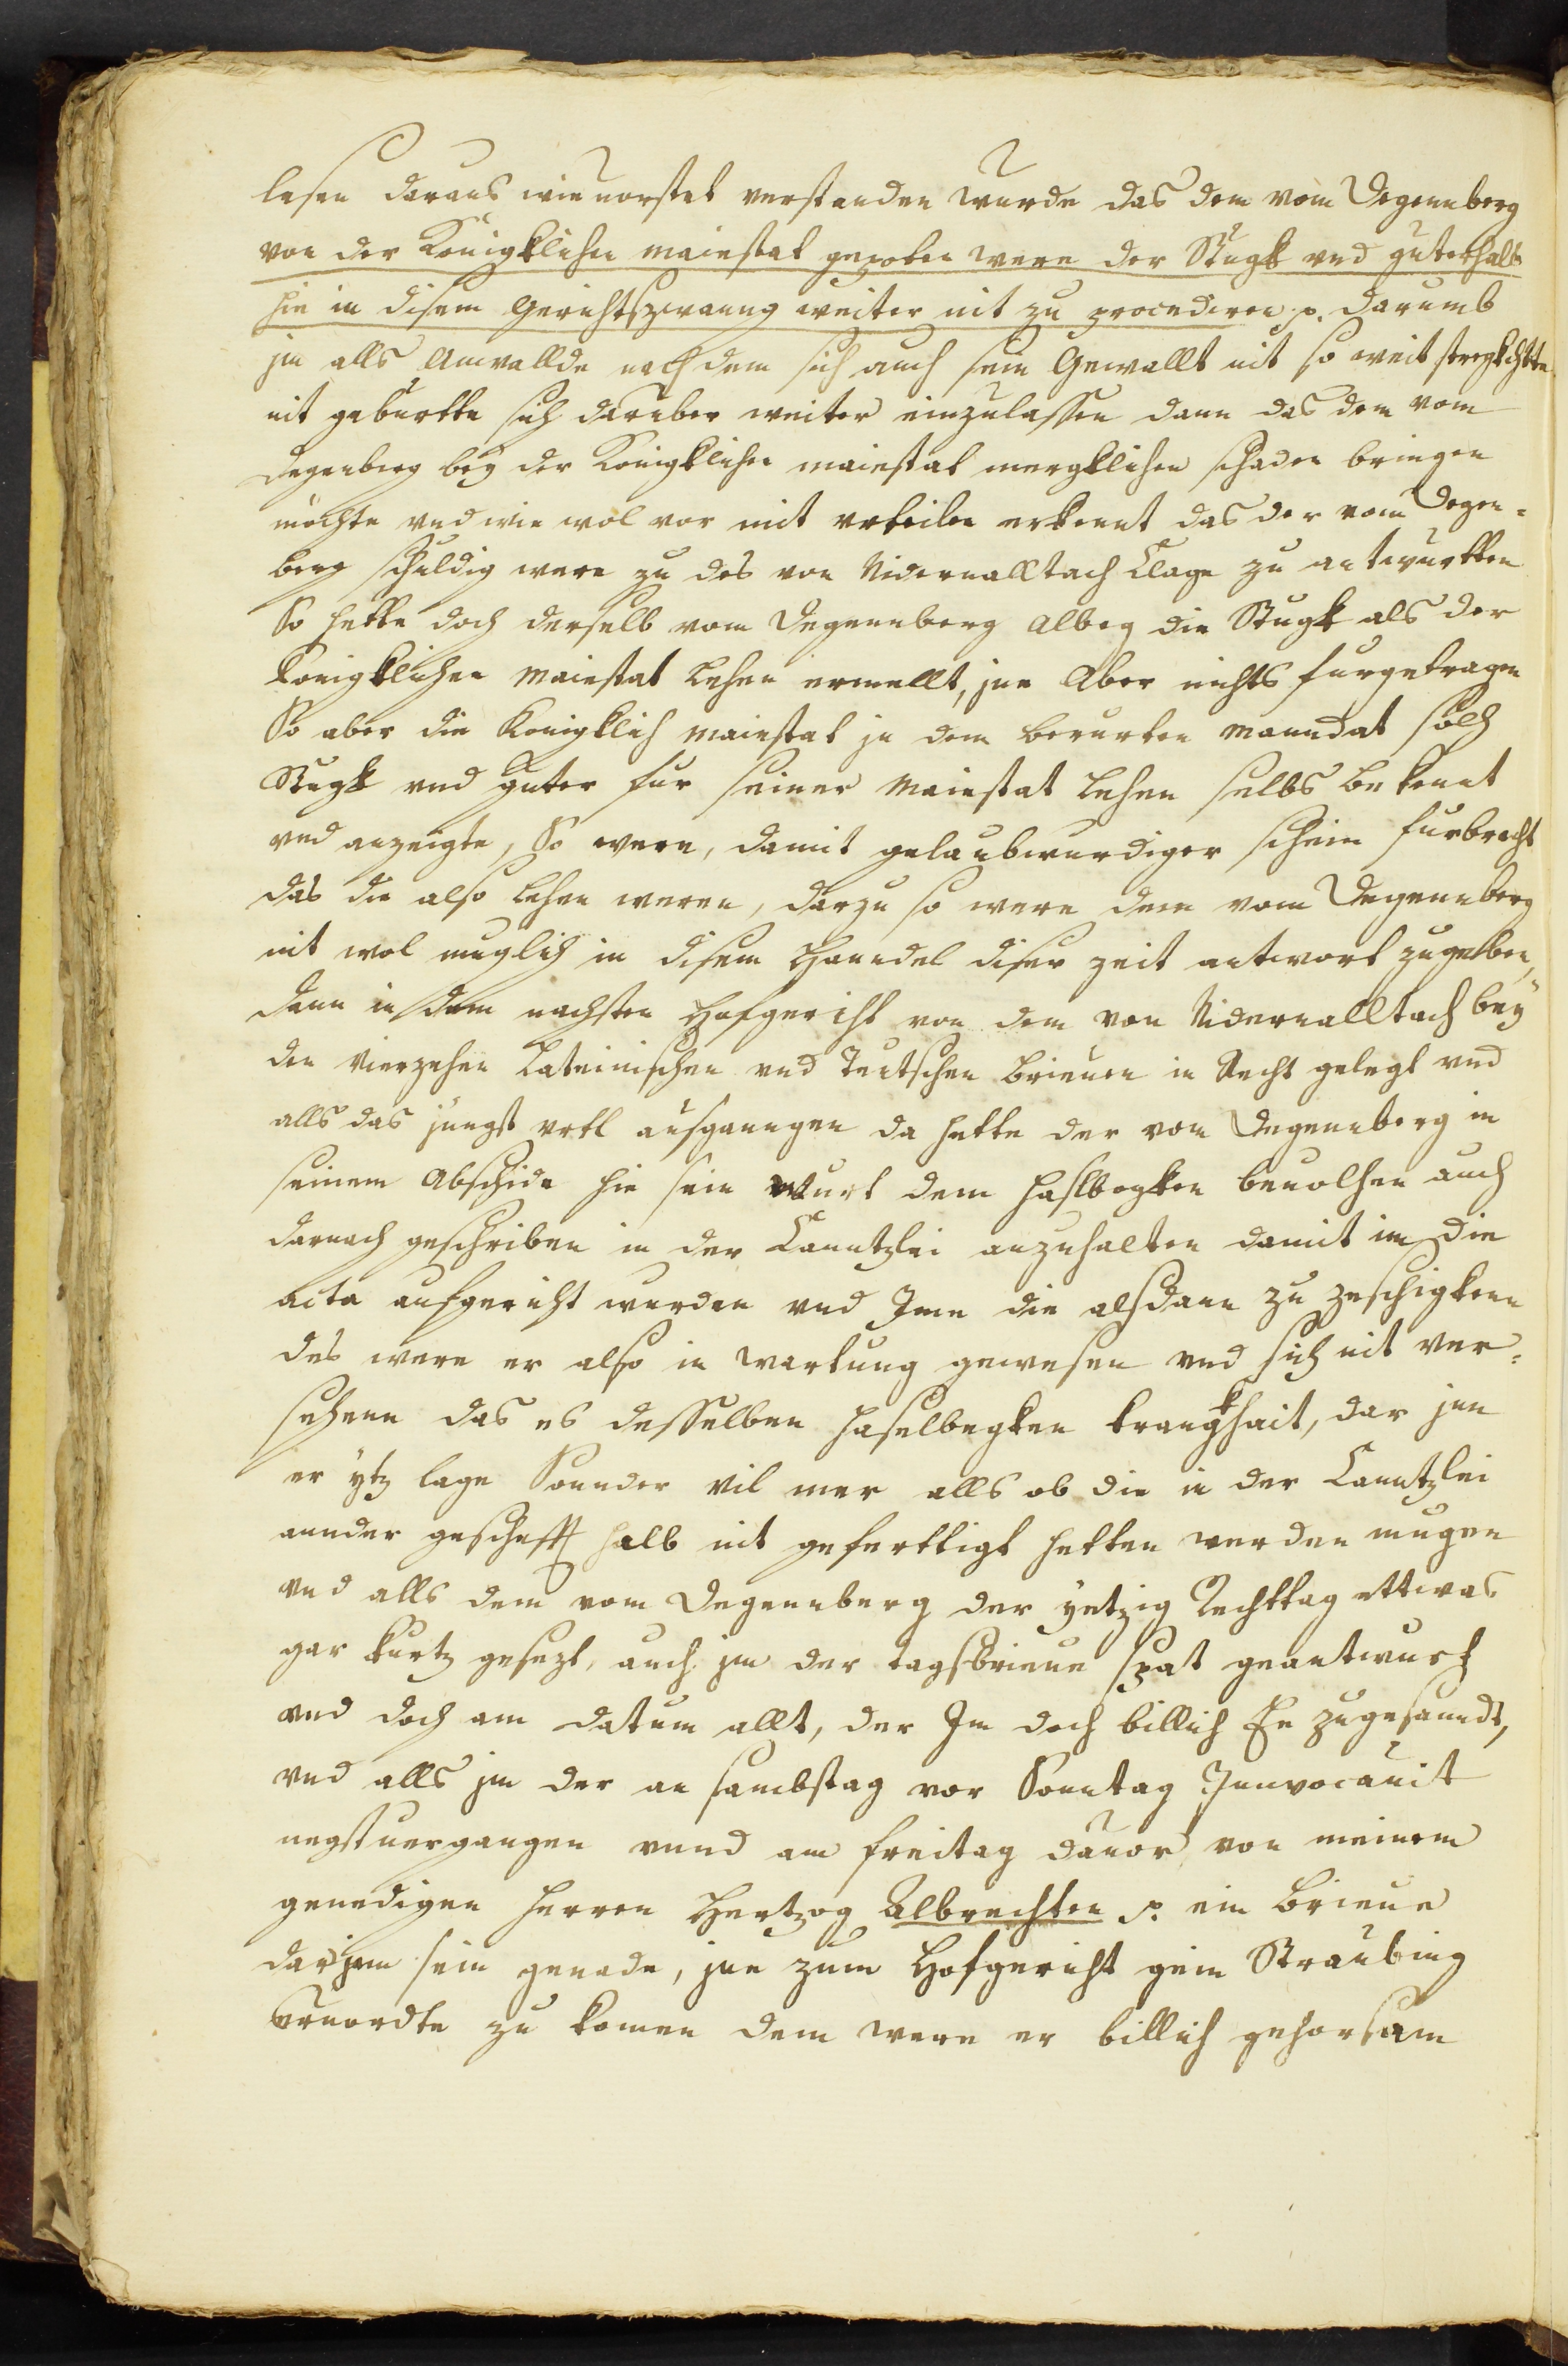 lesen daraus wie vorstet verstanden wurde das dem vom Degennberg
von der Königklichen maiestat gepoten were der Stugk vnd guterhalb
hie in disem Gerichtszwanng weiter nit zu procediren p. darumb
jm alls Annwallde nachdem sich auch sein Gewallt nit so weit stregkhtte
nit geburtte sich daruber weiter einzulassen dann das dem vom
Degenberg bey der Königklichen maiestat mergklichen schaden bringen
möchte vnd wie wol vor mit vrteilen erkennt das der vom Degen=
berg schuldig were zu des von Nidernalltach Clage zu antwurtten
So hette doch derselb vom Degennberg albeg die Stugk als der
königklichen Maiestat Lehen ermellt, jne Aber nichts furgetragen
So aber die Königklich Maiestat jn dem berurten Manndat solh
Stugk vnd guter fur seiner Maiestat Lehen selbs bekennt
vnd anzeigte, So were, damit gelaubwurdiger schein furbracht
das die also Lehen weren, darzu so were dem vom Degennberg
nit wol muglich in disem Hanndel diser zeit antwort zugeben,
dann in dem nachsten Hofgericht von dem von Nidernalltach bey
den vierzehen Lateinischen vnd Teutschen brieuen in Recht gelegt vnd
alls das jungst vrtl ausganngen da hette der vom Degennberg in
seinem Abschide hie sein Wurt dem Haslbegken beuolhen auch
darnach geschriben in der Canntzlei anzuhalten damit im die
Acta aufgericht wurden vnd Ime die alsdann zu zeschigkenn
des were er also in wartung gewesen vnd sich nit ver=
sehenn das es desselben Haselbegken krangkhait, dar jnn
er ytz lage Sonnder vil mer alls ob die in der Canntzlei
annder gescheft halb nit gefertigt hetten werden mugen
vnd alls dem vom Degennberg der yetzig Rechttag ettwas
gar kurtz gesezt, auch jm der tagsbrieue spat geantwurt
vnd doch am datum allt, der Im doch billich Ee zugesanndt,
vnd alls jm der an sambstag vor Sonntag Innvocauit
negstuergangen vnnd am freitag dauor von meinem
genedigen Herren Hertzog Albrechten p. ein brieue
darjnn sein genade, jne zum Hofgericht gein Straubing
eruordte zu komen dem were er billich gehorsam